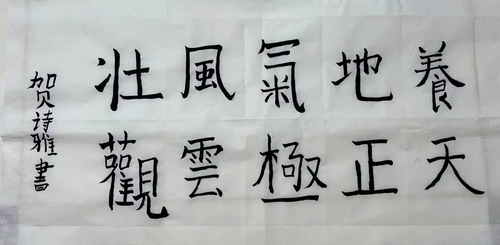 養天
地正
氣極
風雲
壯觀
贺诗雅書